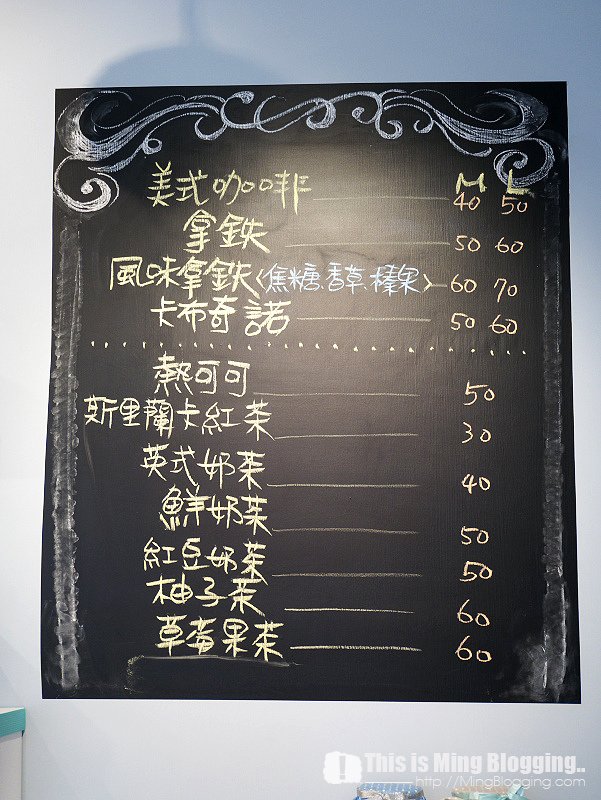 M L
美式咖啡 40 50
拿鉄 50 60
風味拿鉄(焦糖.香草.榛果) 60 70
卡布奇諾 50 60
熱可可 50
斯里蘭卡紅茶 30
英式奶茶 40
鮮奶茶 50
紅豆奶茶 50
柚子茶 60
草莓果茶 60
This is Ming Blogging..
http://MingBlogging.com